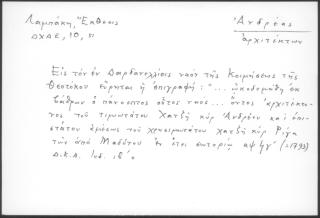 Λαμπάκη, Ἔκθεσις
ΔΧΑΕ, 10, 51
Ἀνδρέας
ἀρχιτέκτων
Εἰς τὸν ἐν Δαρδανελλίοις ναὸν τῆς Κοιμήσεως τῆς
Θεοτόκου εὕρηται ἡ ἐπιγραφή: "... ὠκοδομήθη ἐκ
βάθρων ὁ πάνσεπτος οὗτος ναὸς ... ὄντος ἀρχιτέκτο-
νος τοῦ τιμιωτάτου Χατζῆ κὺρ Ἀνδρέου καὶ ἐπι-
στάτου τοῦ χρησιμωτάτου χατζῆ κὺρ Ρήγα
τῶν ἀπὸ Μαδύτου ἐν ἔτει σωτηρίῳ αψϟγ' (=1793)